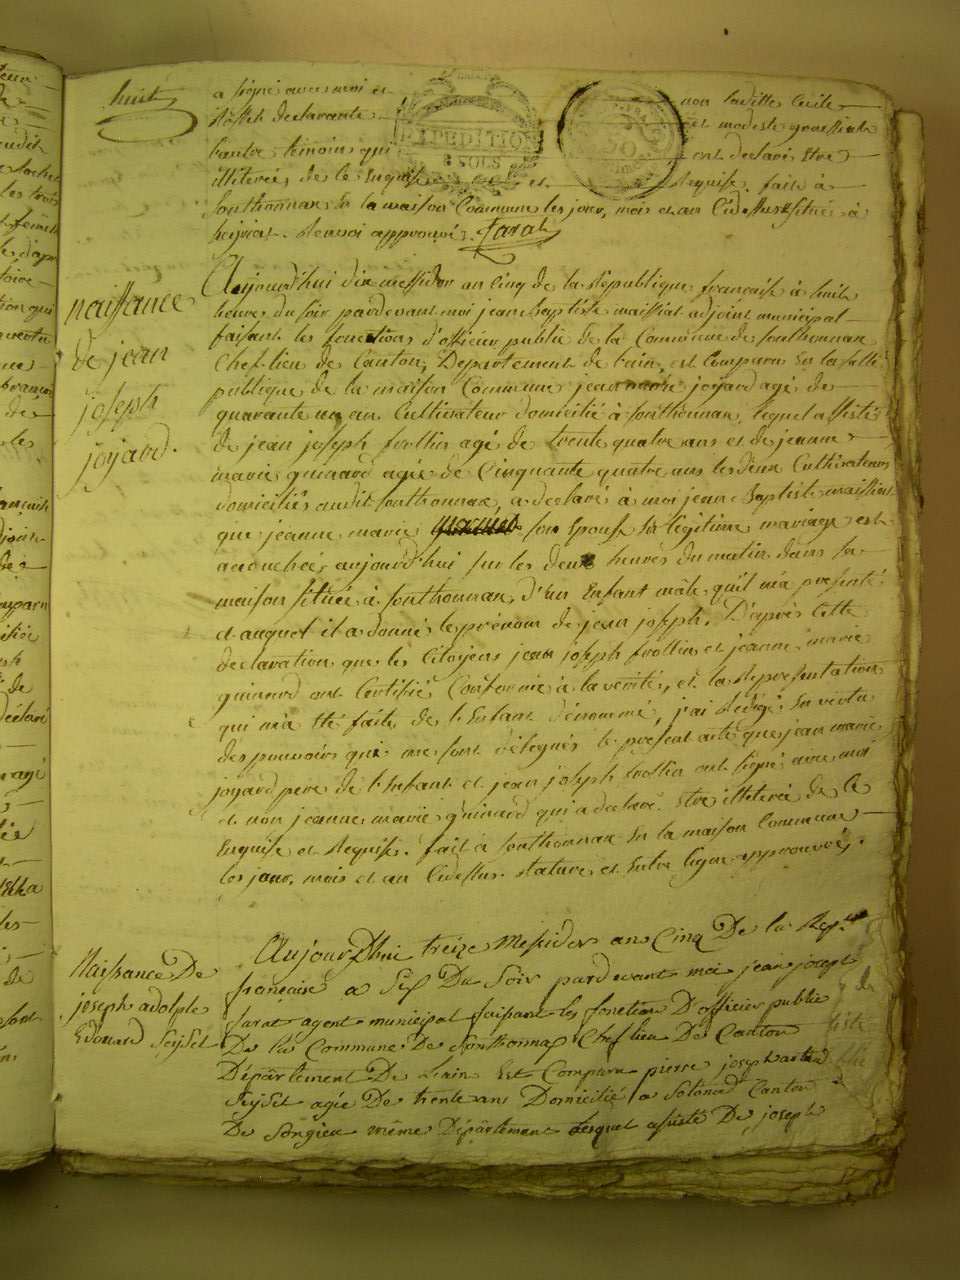 huit
a signé avec moi et non laditte Cécile
declarante et modeste
l'autre témoin qui ont déclaré Etre
EXPEDITION
8 SOLS
illiterés de ce Enquise et Requise. fait à
Sonthonnax En la maison Commune les jour, mois et an Cidessus
Renvoi approuvé. Jarat
naissance
de jean
joseph
joyard.
Aujourd'hui dix messidor an Cinq de la République française à huit
heures du soir pardevant moi jean Baptiste maissiat adjoint municipal
faisant les fonctions d'officier public de la Commune de Sonthonnax
Chef-lieu de Canton, Département de l'ain, est Comparu En la salle
publique de la maison Commune jean marie joyard agé de
quarante un an Cultivateur domicilié à Sonthonnax, lequel assisté
de jean joseph frollin agé de trente quatre ans et de jeanne
marie guinard agée de Cinquante quatre ans les deux Cultivateurs
domiciliés audit Sonthonnax, a declaré à moi jean Baptiste maissiat
que jeanne marie son Epouse En légitime mariage est
accouchée aujourd'hui sur les deux heures du matin dans sa
maison située à Sonthonnax, d'un Enfant mâle qu'il m'a presenté
et auquel il a donné le prénom de jean joseph. D'après Cette
declaration que les Citoyens jean joseph frollin et jeanne marie
guinard ont Certifié Conforme à la vérité, et la Représentation
qui m'a été faite de l'Enfant dénommé, j'ai Rédigé En vertu
des pouvoirs qui me sont délégués le present acte que jean marie
joyard pere de l'enfant et jean joseph frollin ont signé avec moi
et non jeanne marie guinard qui a declaré Etre illiterée de Ce
Enquise et Requise. fait à Sonthonnax En la maison Commune
les jour, mois et an Cidessus. Rature et Entre ligne approuvés.
Naissance De
joseph adolphe
Edouard Seyset
Aujour Dhui treize Messidor an Cinq De la Rep.
française a Six Du Soir pardevant moi jean joseph
Jarat agent municipal faisant les fonction D'officier public
De la Commune De Sonthonnax Chef lieu De Canton
Département De Lain Est Comparu pierre joseph
Seyset agée De trente ans Domicilié a Solomiat Canton
De Songieu même Département Lequel assisté De joseph